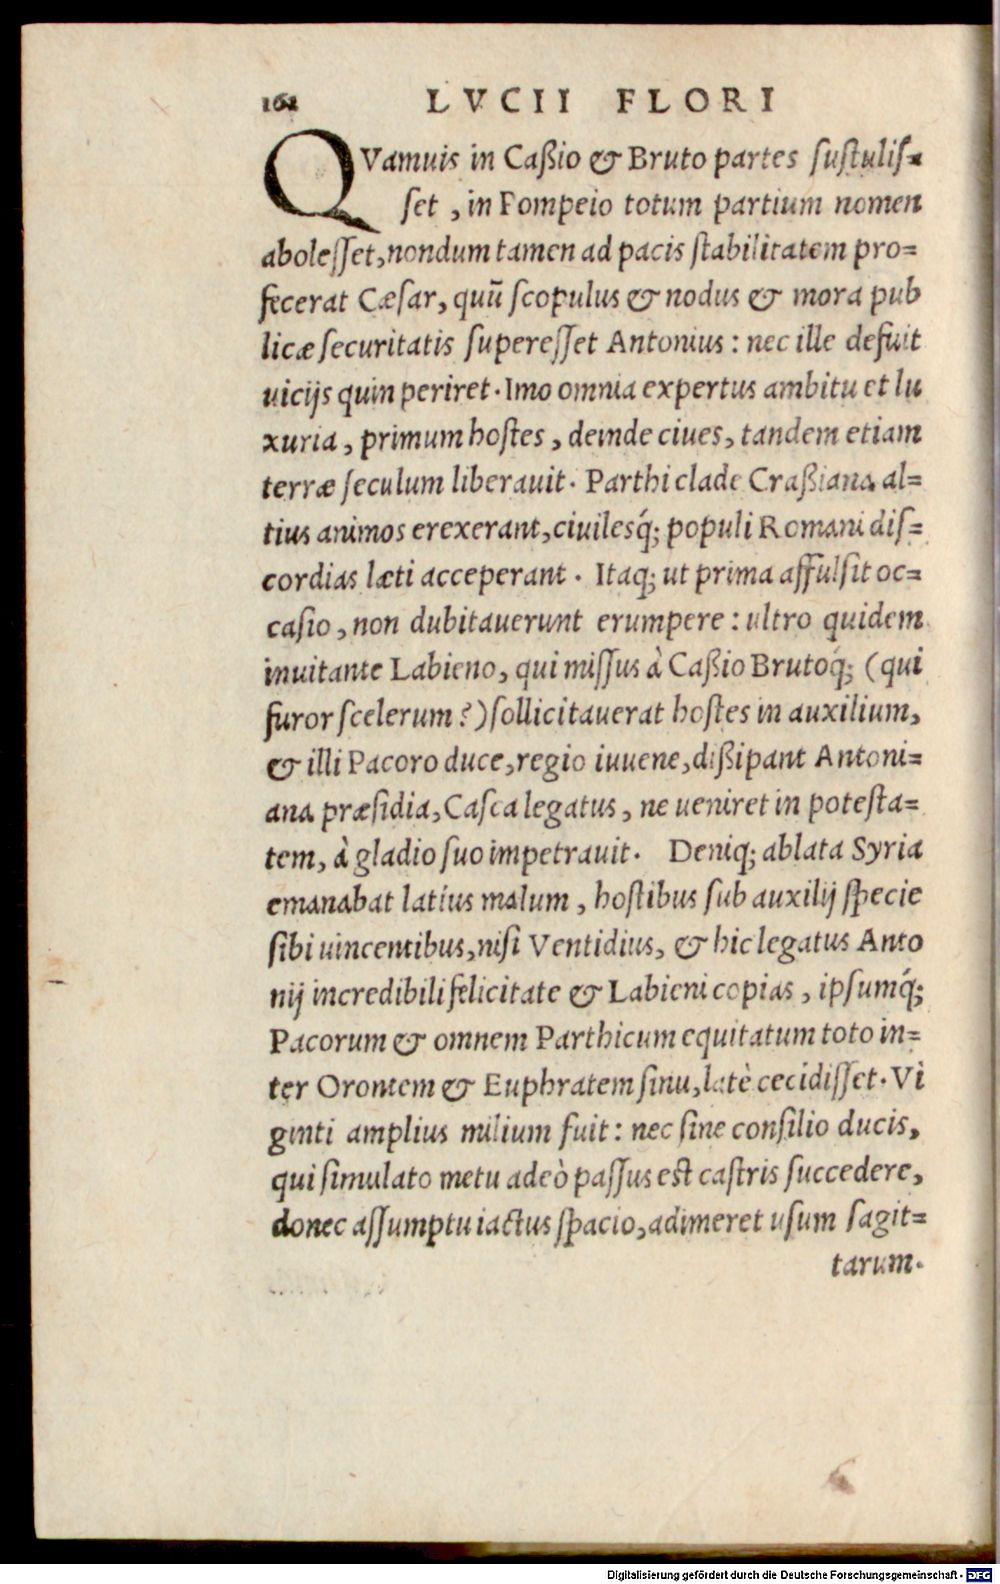 162 LVCII FLORI
QVamuis in Caßio & Bruto partes sustulis-
set, in Pompeio totum partium nomen
abolesset, nondum tamen ad pacis stabilitatem pro=
fecerat Cæsar, quũ scopulus & nodus & mora pub
licæ securitatis superesset Antonius: nec ille defuit
uicijs quin periret. Imo omnia expertus ambitu et lu
xuria, primum hostes, deinde ciues, tandem etiam
terræ seculum liberauit. Parthi clade Craßiana al=
tius animos erexerant, ciuilesq́; populi Romani dis=
cordias læti acceperant. Itaq; ut prima affulsit oc=
casio, non dubitauerunt erumpere: ultro quidem
inuitante Labieno, qui missus à Caßio Brutoq́; (qui
furor scelerum?) sollicitauerat hostes in auxilium,
& illi Pacoro duce, regio iuuene, dißipant Antoni=
ana præsidia, Casca legatus, ne ueniret in potesta=
tem, à gladio suo impetrauit. Deniq; ablata Syria
emanabat latius malum, hostibus sub auxilij specie
sibi uincentibus, nisi Ventidius, & hic legatus Anto
nij incredibili felicitate & Labieni copias, ipsumq́;
Pacorum & omnem Parthicum equitatum toto in=
ter Orontem & Euphratem sinu, latè cecidisset. Vi
ginti amplius milium fuit: nec sine consilio ducis,
qui simulato metu adeò passus est castris succedere,
donec assumptu iactus spacio, adimeret usum sagit=
tarum.
Digitalisierung gefördert durch die Deutsche Forschungsgemeinschaft - DFG